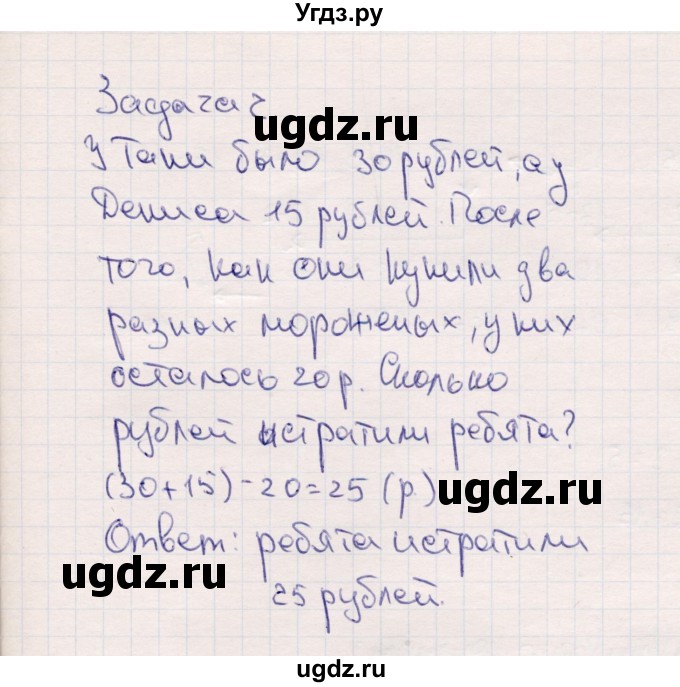 Угдз.ру
Задача 2
ugdz.ru
У Тани было 30 рублей, а у
Дениса 15 рублей. После
того, как они купили два
разных мороженых, у них
осталось 20 р. Сколько
рублей истратили ребята?
(30+15)-20=25 (р.)
ugdz.ru
Ответ: ребята истратили
ugdz.ru
25 рублей.
ugdz.ru